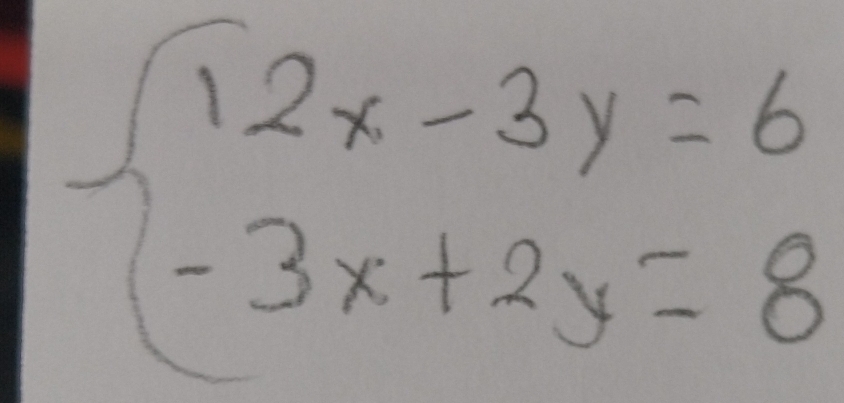 12x - 3y = 6
-3x + 2y = 8